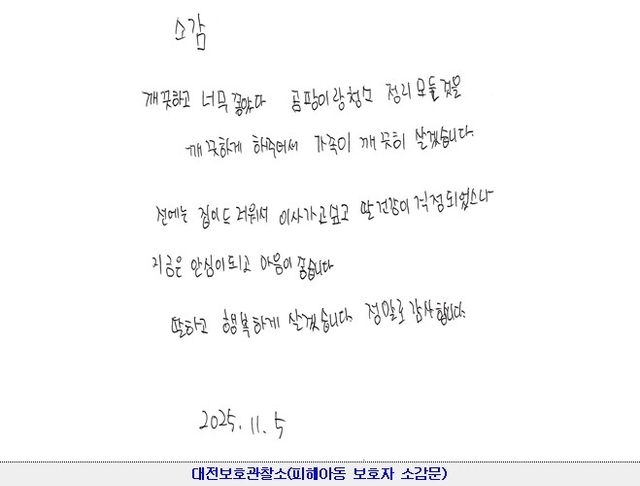 소감
깨끗하고 너무 좋았다 곰팡이랑 청소 정리 모든 것을
깨끗하게 해주어서 가족이 깨끗히 살겠습니다.
전에는 집이 드러워서 이사가고 싶고 딸 건강이 걱정되었으나
지금은 안심이 되고 마음이 좋습니다
딸하고 행복하게 살겠습니다. 정말로 감사합니다.
2025. 11. 5
대전보호관찰소(피해아동 보호자 소감문)